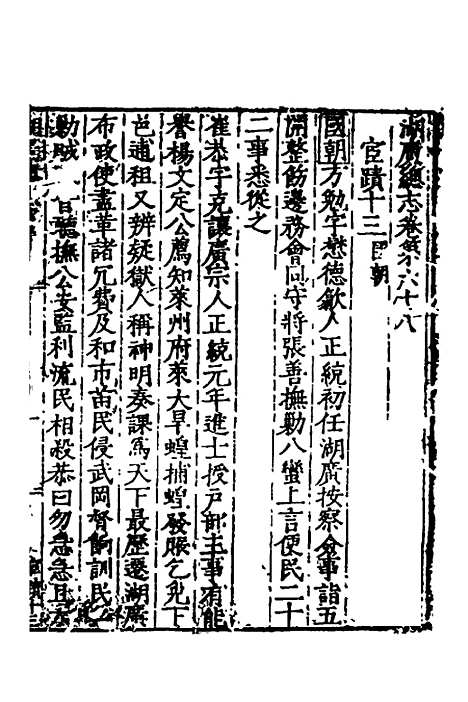 湖廣總志卷第六十八
宦蹟十三 國朝
國朝方勉字懋德歙人正統初任湖廣按察僉事詣五
開整飭邊務會同守將張善撫勦八蠻上言便民二十
二事悉從之
崔恭字克讓廣宗人正統元年進士授戶部主事有能
譽楊文定公薦知萊州府萊大旱蝗捕蝗發賑乞免下
邑逋租又辨疑獄人稱神明奏課為天下最歷遷湖廣
布政使盡革諸冗費及和市苗民侵武岡督餉訓民
勦賊 聽撫公安監利流民相殺恭曰勿急急且